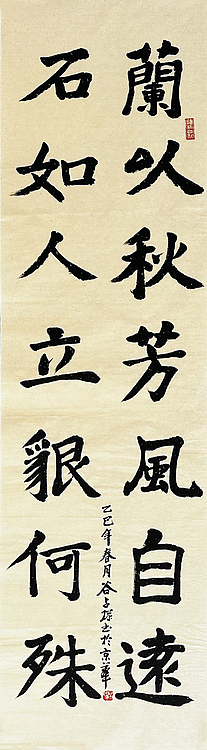 蘭以秋芳風自遠
石如人立貌何殊
乙巳年春月谷占琛书於京華